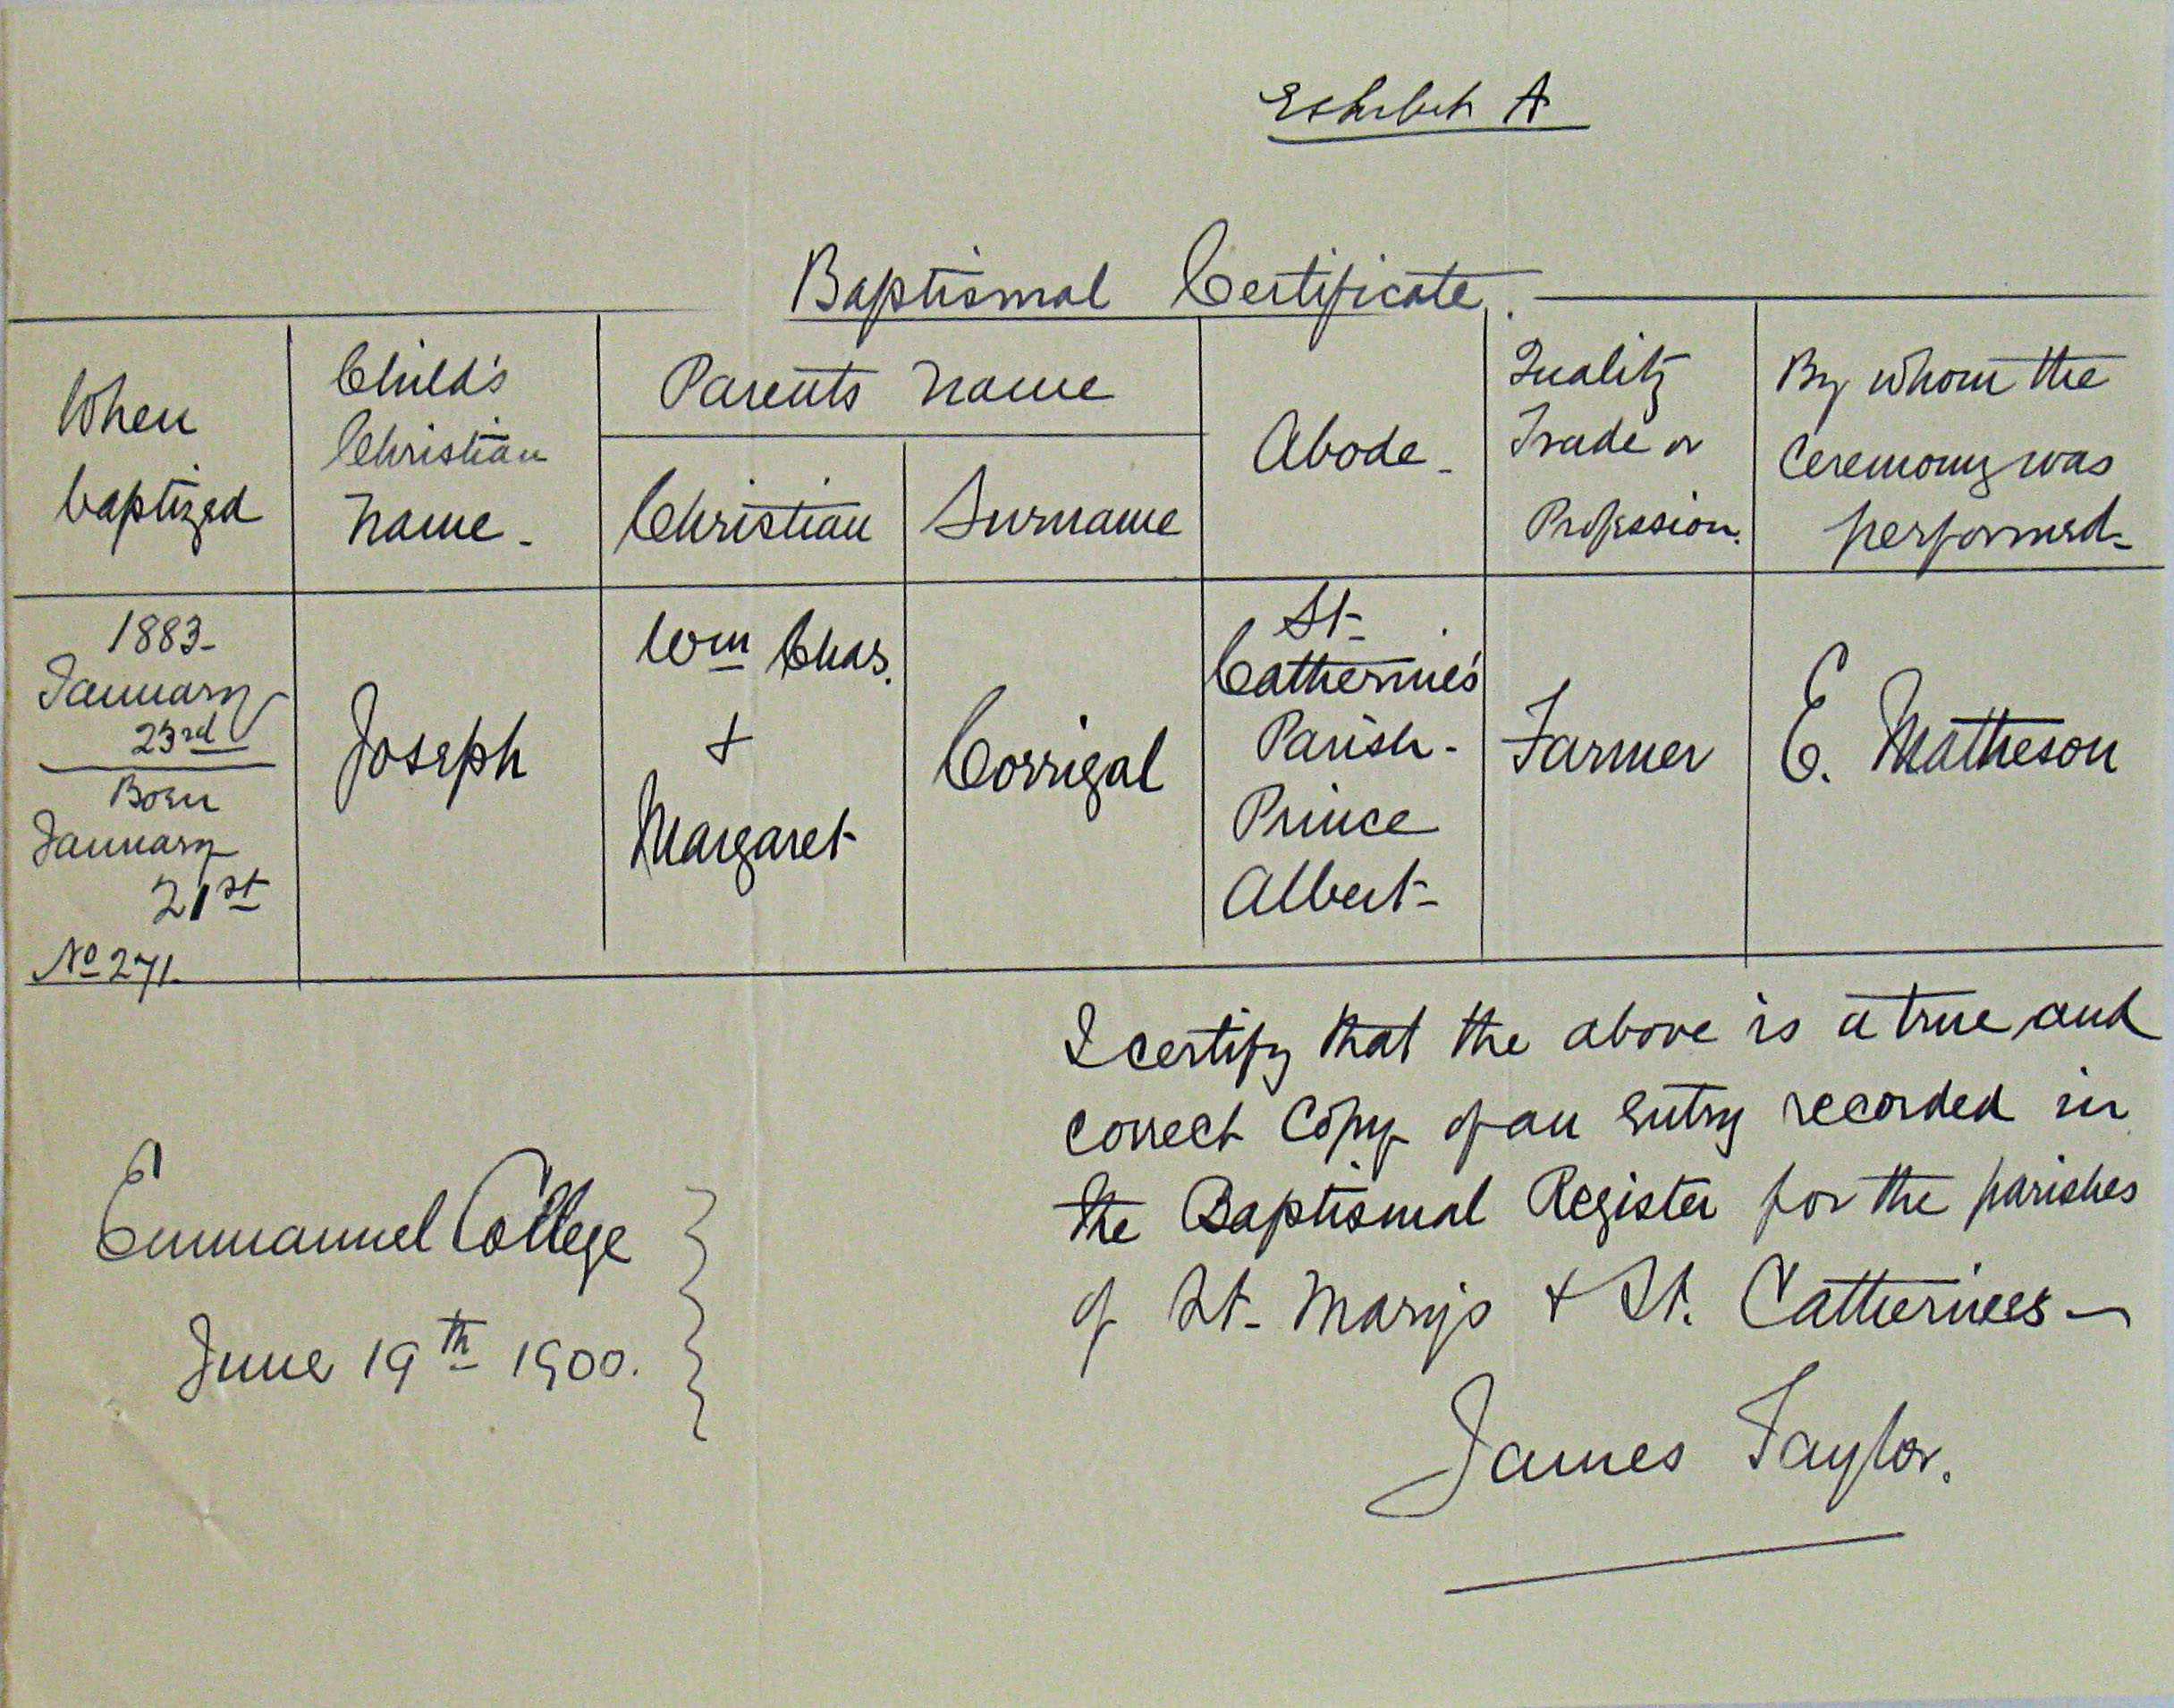 Exhibit A
Baptismal Certificate.
When
baptized
Child's
Christian
Name -
Parents Name
Christian
Surname
Abode -
Quality
Trade or
Profession.
By whom the
Ceremony was
performed -
1883 -
January
23rd
Born
January
21st
No 271.
Joseph
Wm Chas.
+
Margaret
Corrigal
St -
Catherine's
Parish -
Prince
Albert -
Farmer
E. Matheson
I certify that the above is a true and
correct Copy of an entry recorded in
the Baptismal Register for the parishes
of St - Mary's + St. Catherines -
James Taylor.
Emmanuel College
June 19th 1900.